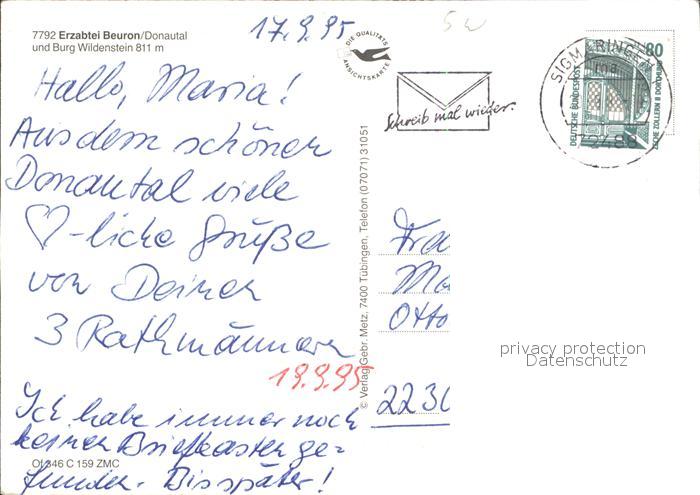 17.9.95
7792 Erzabtei Beuron/Donautal
und Burg Wildenstein 811 m
Hallo, Maria!
Aus dem schönen
Donautal viele
♡-liche Grüße
von Deinen
3 Rathmännern
19.9.95
Ich habe immer noch
keinen Briefkasten ge-
funden. Bis später!
Of 346 C 159 ZMC
© Verlag Gebr. Metz, 7400 Tübingen, Telefon (07071) 31051
DIE QUALITÄTS
ANSICHTSKARTE
Schreib mal wieder.
SIGMARINGEN
80
DEUTSCHE BUNDESPOST
ZECHE ZOLLERN II DORTMUND
72488
Fra
Ma
Otto
2230
privacy protection
Datenschutz